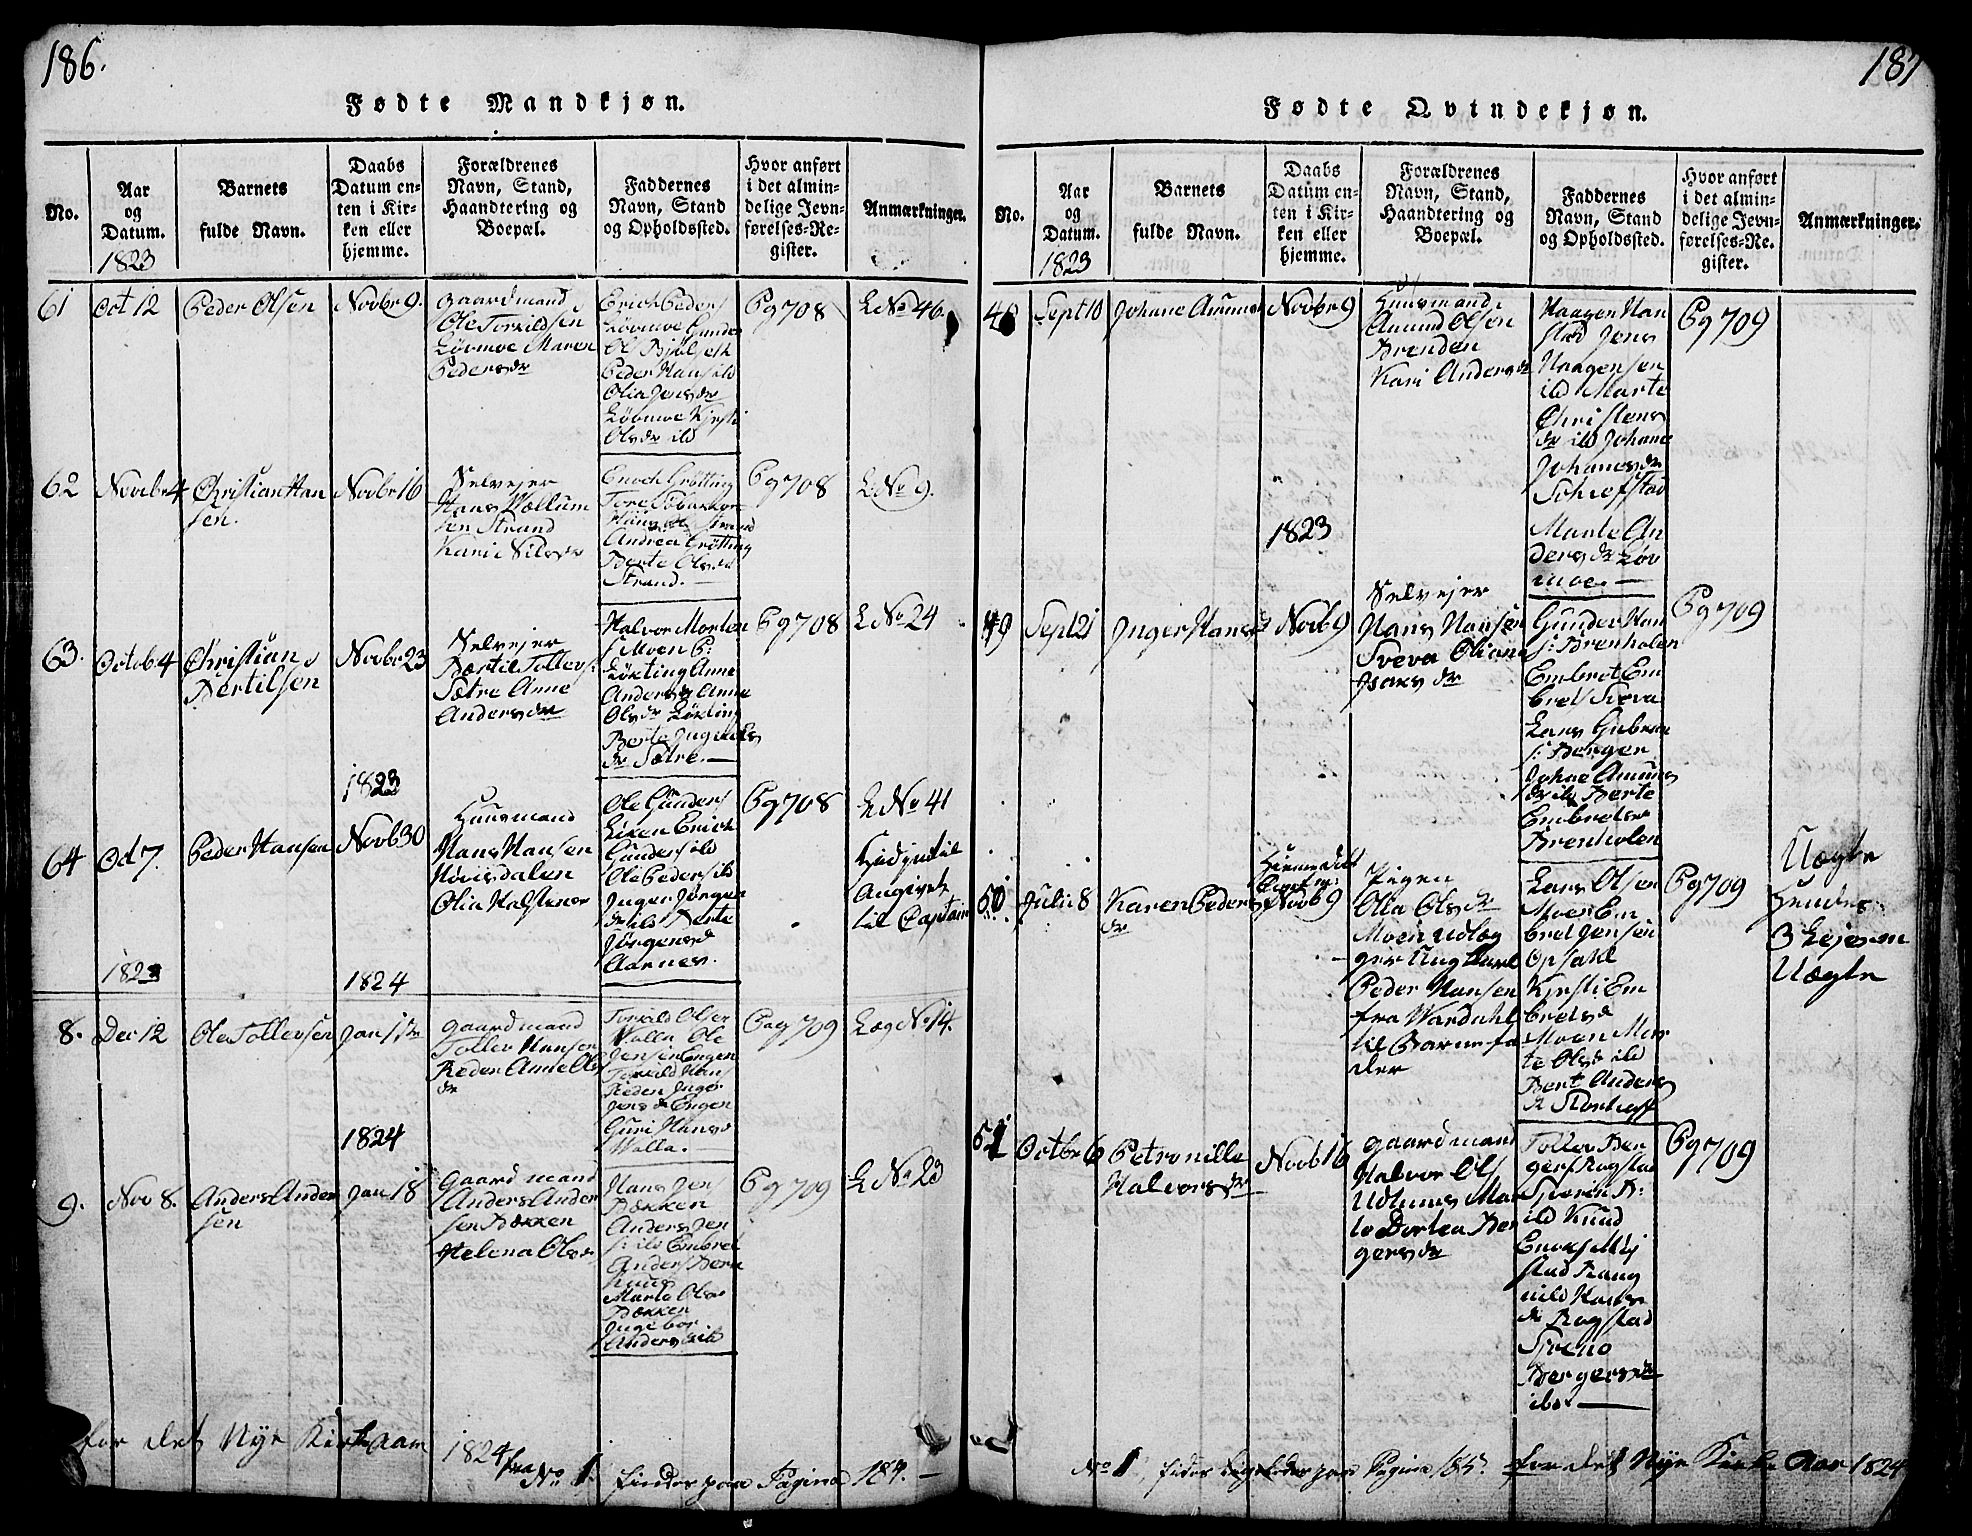 186.
Fødte Mandkjøn.
No.
Aar
og
Datum.
1823
Barnets
fulde Navn.
Daabs
Datum en-
ten i Kir-
ken eller
hjemme.
Forældrenes
Navn, Stand,
Haandtering og
Boepæl.
Faddernes
Navn, Stand
og Opholdssted.
Hvor anført
i det almin-
delige Jevn-
førelses-Re-
gister.
Anmærkninger.
61
Oct 12
Peder Olsen
Novbr 9.
Gaardmand
Ole Torkildsen
Løvmoe Maren
Pedersdr
Erich Peders
Løvmoe
Peder Hans ild
Olia Jensdr
Løvmoe Kjersti
Olsdr ild
Pg 708
L No 46.
62
Novbr 4
Christian Han
sen.
Novbr 16
Selvejer
Hans
sen Strand
Kari Nilsdr
Enoch Grøtting
Tore
Strand
Andrea Grøtting
Berte Olsdr
Strand.
Pg 708
L No 9.
63.
Octob 4
Christian
Bertilsen
Novbr 23
Selvejer
Bertil Tollevs:
Sætre Anne
Andersdr
Halvor Morten
s: Moen P:
Løkting Anne
Andersdr Anne
Olsdr Løkting
Berte
dr Sætre.
Pg 708
L No 24
1823
64
Oct 7.
Peder Hansen
Novb 30
Huusmand
Hans Hansen
Nørsdalen
Olia Halstensdr
Ole Gunders
Lien Erich
Gunders ild
Ole Peders ild
Inger Jørgen
dr ild Berte
Jørgensd
Aarnes.
Pg 708
L No 41
Angivet
til Captain
1823
1824
8.
Dec 12
Ole Tollevsen
Jan 1
Gaardmand
Tollev Hansen
Reden Anne Ols
dr
Torkild Olsen
Walla Ole
Jensen Engen
Torkild Hans
Reden Inger
Jensdr Engen
Guri Hansd
Walla.
Pag 709
Læg No 14.
1824
9.
Nov 8.
Anders Ander
sen
Jan 18
Gaardmand
Anders Ander
sen Bækken
Helena Olsdr
Hans Jens
Bækken
Anders Jen
s: ild Embret
Anders Bern
haus
Marte Olsd
Bækken
Ingebor
Andersd ild
Pg 709
L No 23
for det Nye Kirkeaar
1824 fra
No 1. findes paa Pagina 184.
187
Fødte Qvindekjøn.
No.
Aar
og
Datum.
1823
Barnets
fulde Navn.
Daabs
Datum en-
ten i Kir-
ken eller
hjemme.
Forældrenes
Navn, Stand,
Haandtering og
Boepæl.
Faddernes
Navn, Stand
og Opholdssted.
Hvor anført
i det almin-
delige Jevn-
førelses-Re-
gister.
Anmærkninger.
Sept 10
Johane
Novbr 9
Huusmand
Amund Olsen
Brenden
Kari Andersdr
Haagen Han
stad Jens
Haagensen
ild Marte
Christens
dr ild Johane
Johanesdr
Marte An
dersdr Løv
moe.
Pg 709
1823
49
Sept 21
Inger Hansd
Novb 9
Selvejer
Hans Hansen
Sveva Oliana
dr
Gunder Han
s: Brenholen
Embret Em
brets Sveva
Lars Gubran
s: Bergen
Johane Amunds
dr ild Berte
Embretsdr
Brenholen
Pg 709
50
Julii 8
Karen Peders
dr
Novb 9
Pigen
Olia Olsdr
Moen udlæg
ger Ungkarl
Peder Hansen
fra Wardahl
til Barnefa
der
Lars Olsen
Moen Em
bret Jensen
Opsahl
Kjersti Em
bretsd
Moen Mar
te Olsdr ild
Berte Anders
dr
Pg 709
Uægte
Hendes
3 Lejerm
Uægte
51
Octbr 6
Petronille
Halvorsdr
Novb 16
Gaardmand
Halvor Ols
Udhuus Mar
te Dortea Ber
gersdr
Tollev Ber
gers Rogstad
Syverin B:
ild Knud
stad Rang
nild Hans
dr Rogstad
Bergersdr
ibd.
Pg 709
No 1 findes paa Pagina 185. for det Nye Kirke Aar 1824